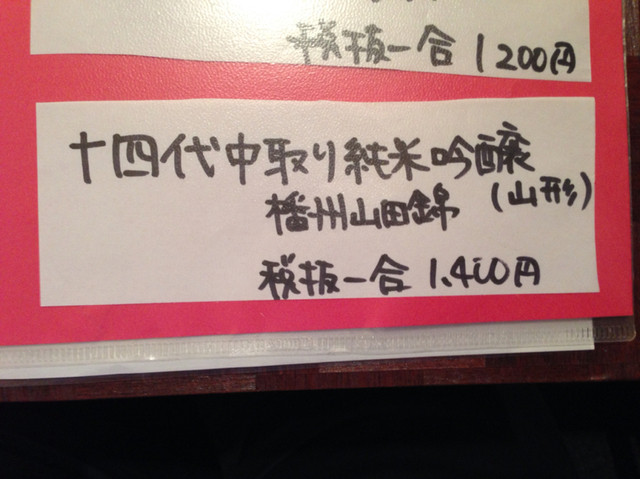 税抜一合 1200円
十四代中取り純米吟醸
播州山田錦 (山形)
税抜一合 1.400円